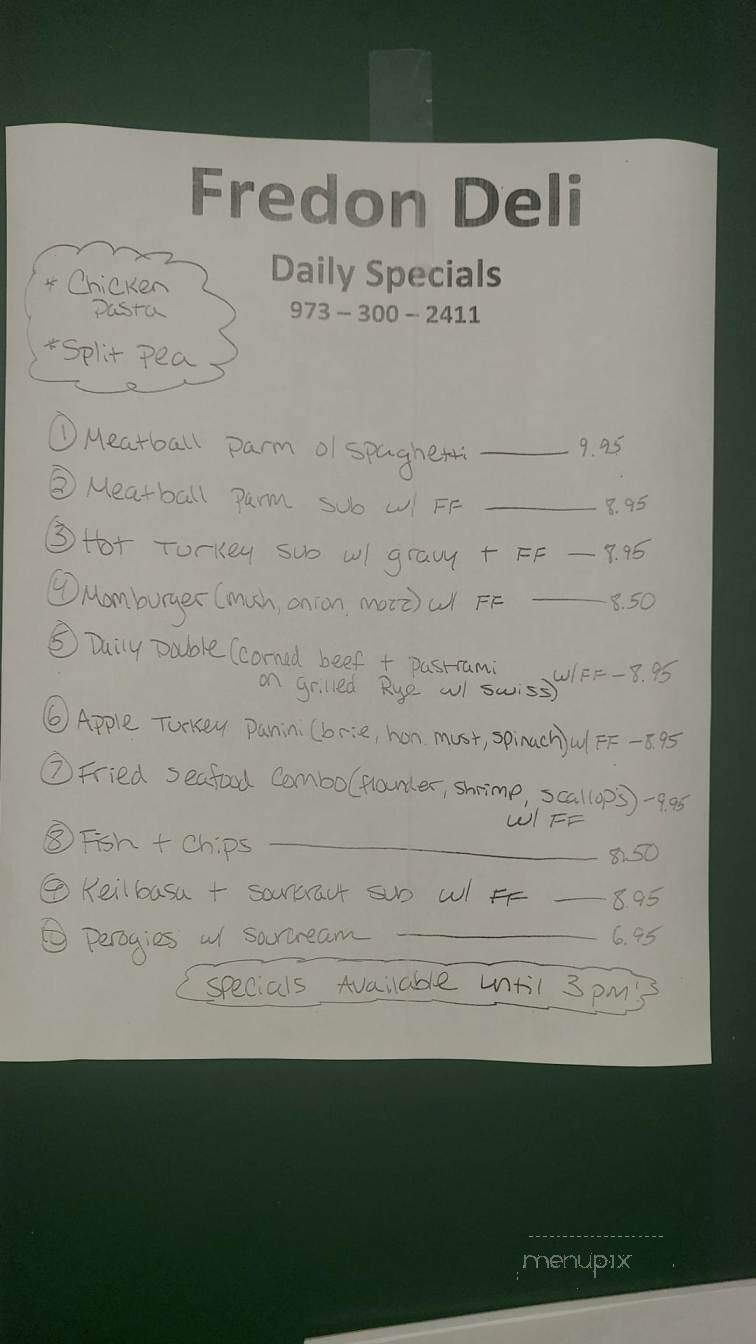 Fredon Deli
Daily Specials
973 – 300 – 2411
* Chicken
Pasta
* Split Pea
① Meatball Parm o/ Spaghetti — 9.95
② Meatball Parm Sub w/ FF — 8.95
③ Hot Turkey Sub w/ gravy + FF — 8.95
④ Momburger (mush, onion, mozz) w/ FF — 8.50
⑤ Daily Double (corned beef + pastrami
on grilled Rye w/ swiss) w/ FF - 8.95
⑥ Apple Turkey Panini (brie, hon. must, spinach) w/ FF - 8.95
⑦ Fried Seafood Combo (flounder, shrimp, scallops) - 9.95
w/ FF
⑧ Fish + Chips — 8.50
⑨ Keilbasa + sourcraut sub w/ FF — 8.95
⑩ Perogies w/ sourcream — 6.95
Specials Available until 3 pm!
menupix